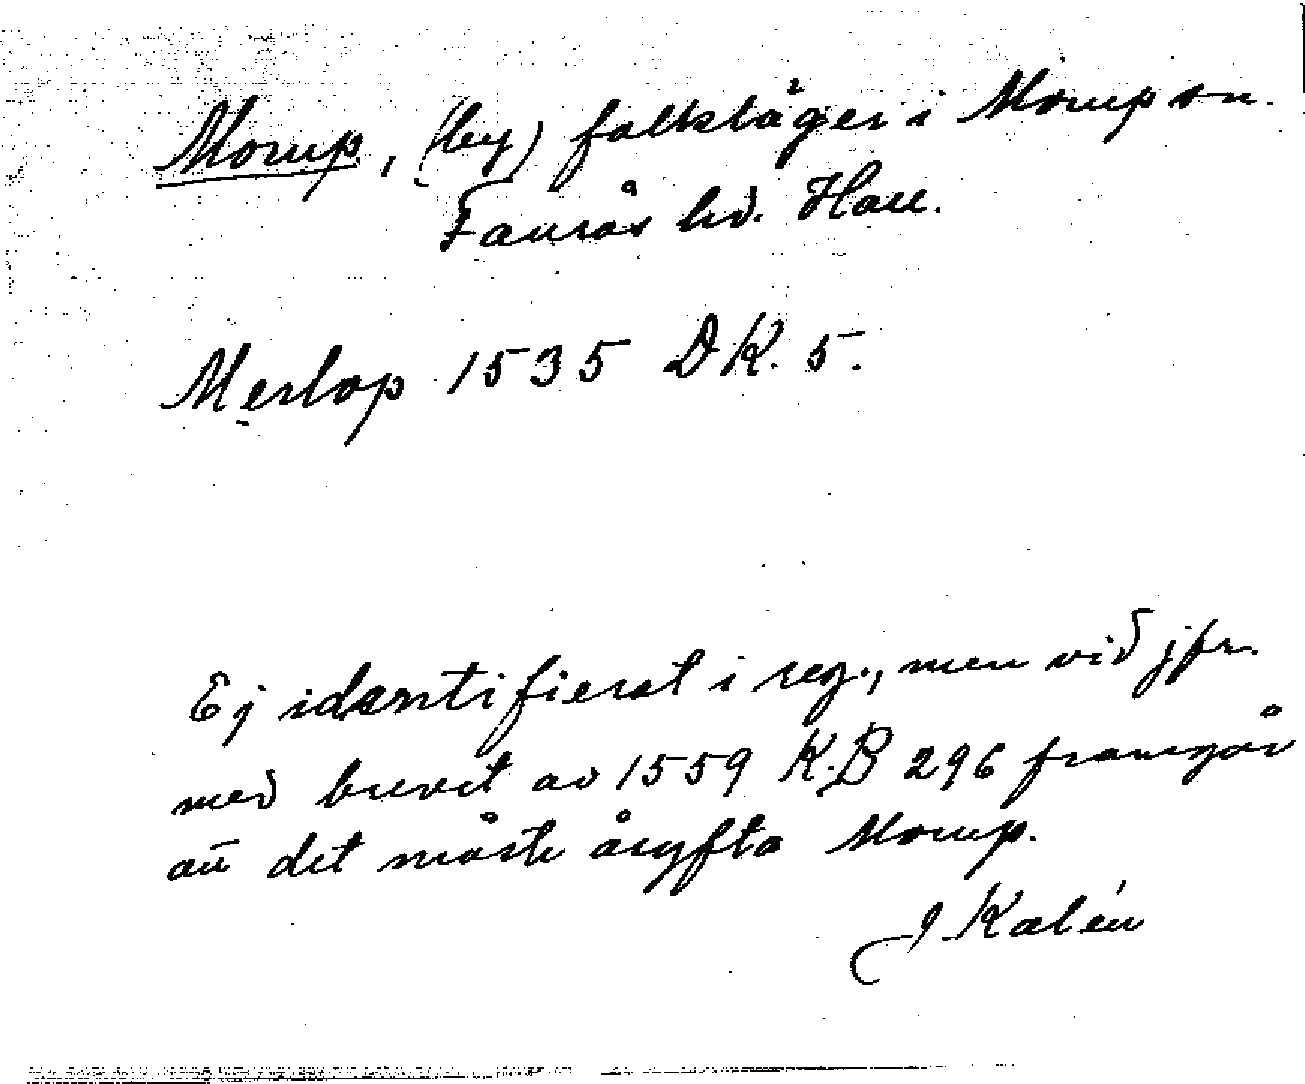 Morup, (by) folkläger i Morup sn.
Faurås hd. Hall.
Merlop 1535 DK. 5.
Ej identifierat i reg., men vid jfr.
med brevet av 1559 K.B 296 framgår
att det måste åsyfta Morup.
J Kalén